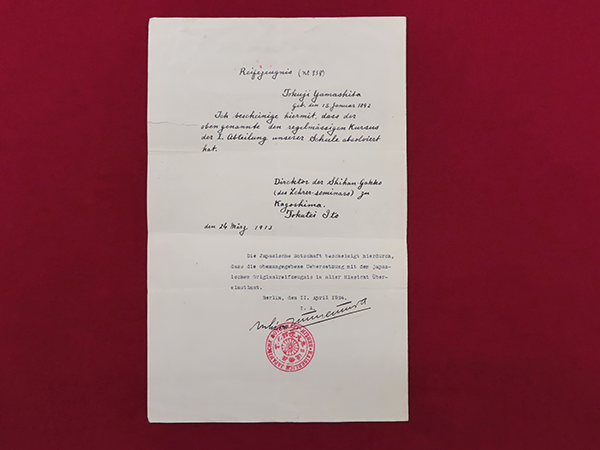 Reifezeugnis (No 318)
Tokuji Yamashita
geb. den 15. Januar 1892
Ich bescheinige hiermit, dass der
obengenannte den regelmässigen Kursus
der I. Abteilung unserer Schule absolviert
hat.
Direktor der Shihan-Gakko
(des Lehrer-seminars) zu
Kagoshima.
Tokutei Ito
den 26 März 1913
Die Japanische Botschaft bescheinigt hierdurch,
dass die obenangegebene Uebersetzung mit dem japan-
ischen Originalreifezeugnis in aller Hinsicht Über-
einstimmt.
Berlin, den 11. April 1924.
I. A.